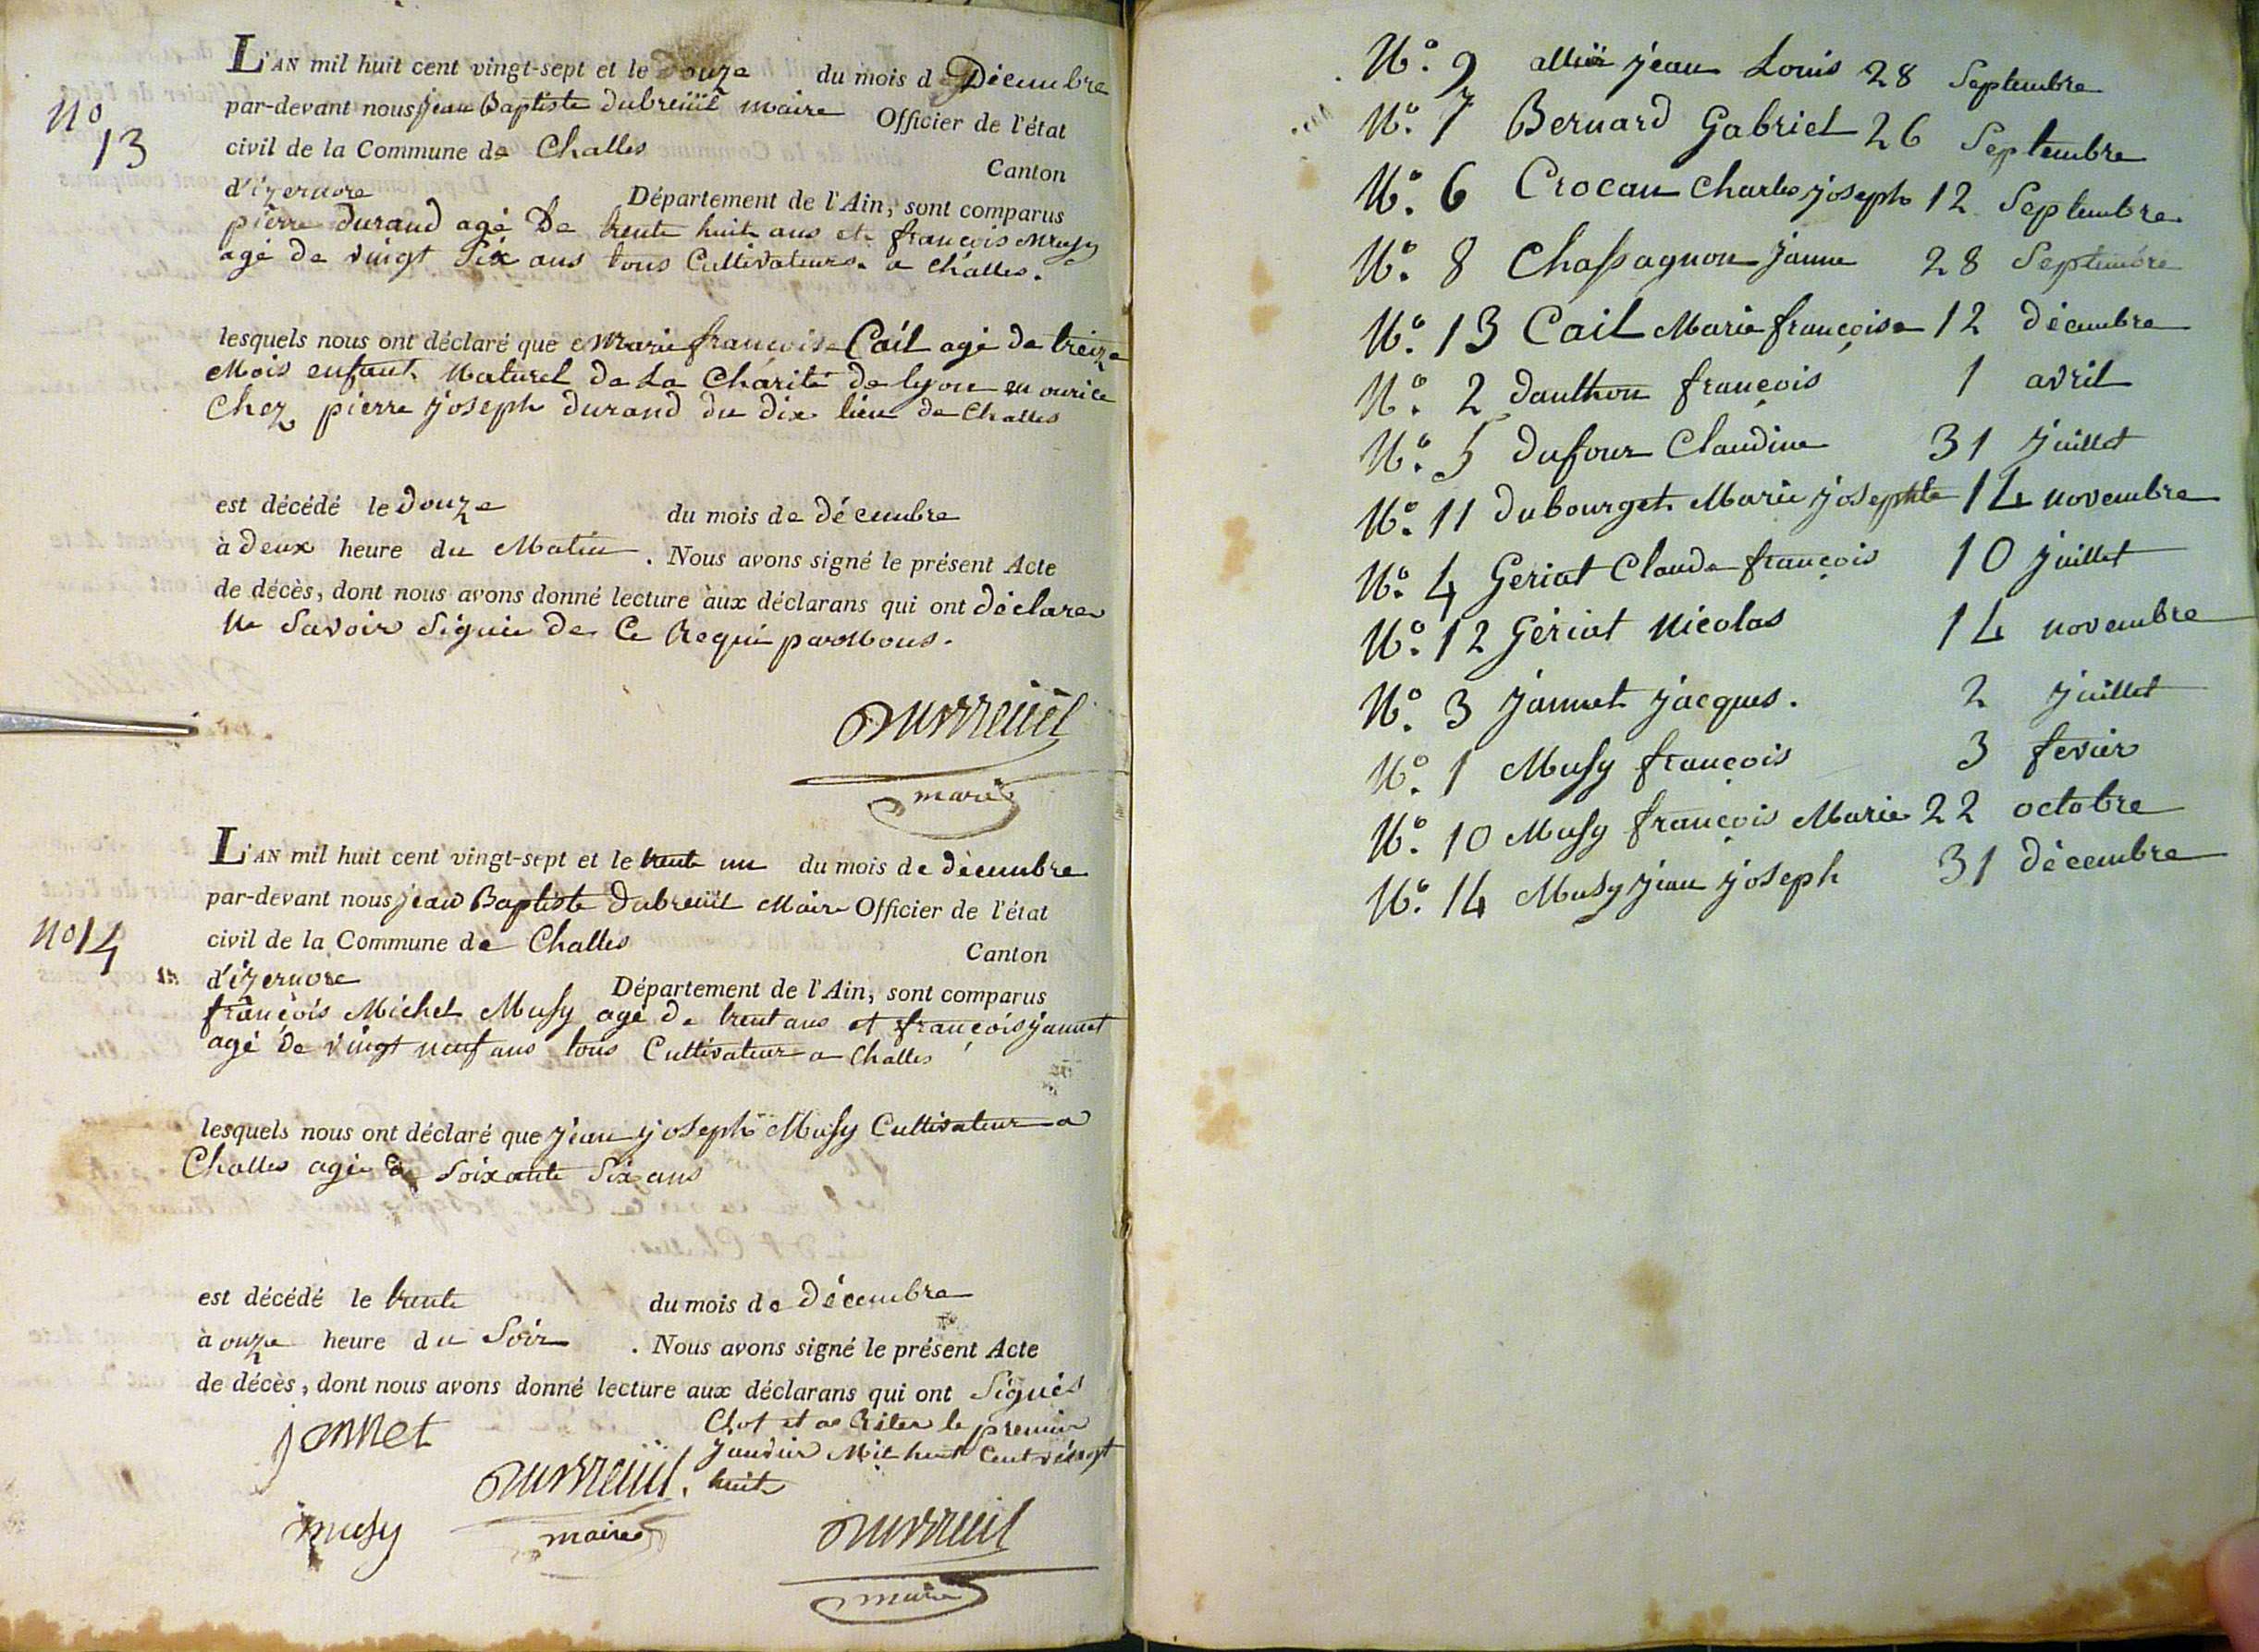 L'AN mil huit cent vingt-sept et le douze du mois de Décembre
No 13
par-devant nous jean Baptiste dubreüil maire Officier de l'état
civil de la Commune de Challes Canton
d'izernore Département de l'Ain, sont comparus
pierre durand agé De trente huit ans et françois Musy
agé de vingt Six ans tous Cultivateurs a challes.
lesquels nous ont déclaré que marie françoise Cail agé de treize
Mois enfant Naturel de La Charité de lyon en ourice
Chez pierre joseph durand du dix lieu de Challes
est décédé le douze du mois de décembre
à deux heure du Matin. Nous avons signé le présent Acte
de décès, dont nous avons donné lecture aux déclarans qui ont déclarer
Ne Savoir Signie de Ce Requi par Nous.
Dubreüil
maire
L'AN mil huit cent vingt-sept et le trente un du mois de décembre
par-devant nous jean Baptiste Dubreüil Maire Officier de l'état
No 14
civil de la Commune de Challes Canton
d'izernore Département de l'Ain, sont comparus
françois Michel Musy agé de trent ans et françois jannet
agé De vingt neuf ans tous Cultivateur a Challes
lesquels nous ont déclaré que jean joseph Musy Cultivateur a
Challes agé de Soixante Six ans
est décédé le trente du mois de décembre
à onze heure du Soir. Nous avons signé le présent Acte
de décès, dont nous avons donné lecture aux déclarans qui ont Signés
jannet
Clot et a Reter le premier
janvier Mil huit Cent vingt
huit
Dubreüil.
maire
musy
Dubreüil
maire
No. 9 jean Louis 28 Septembre
No. 7 Bernard Gabriel 26 Septembre
No. 6 Crocau Charles joseph 12 Septembre
No. 8 Chassagnon janne 28 Septembre
No. 13 Cail Marie françoise 12 décembre
No. 2 Danthon françois 1 avril
No. 5 Dufour Claudine 31 juillet
No. 11 Dubourget Marie josephte 14 novembre
No. 4 Geriat Claude françois 10 juillet
No. 12 Gériat Nicolas 14 novembre
No. 3 jannet jacques. 2 juillet
No. 1 Musy françois 3 fevier
No. 10 Musy françois Marie 22 octobre
No. 14 Musy jean joseph 31 décembre